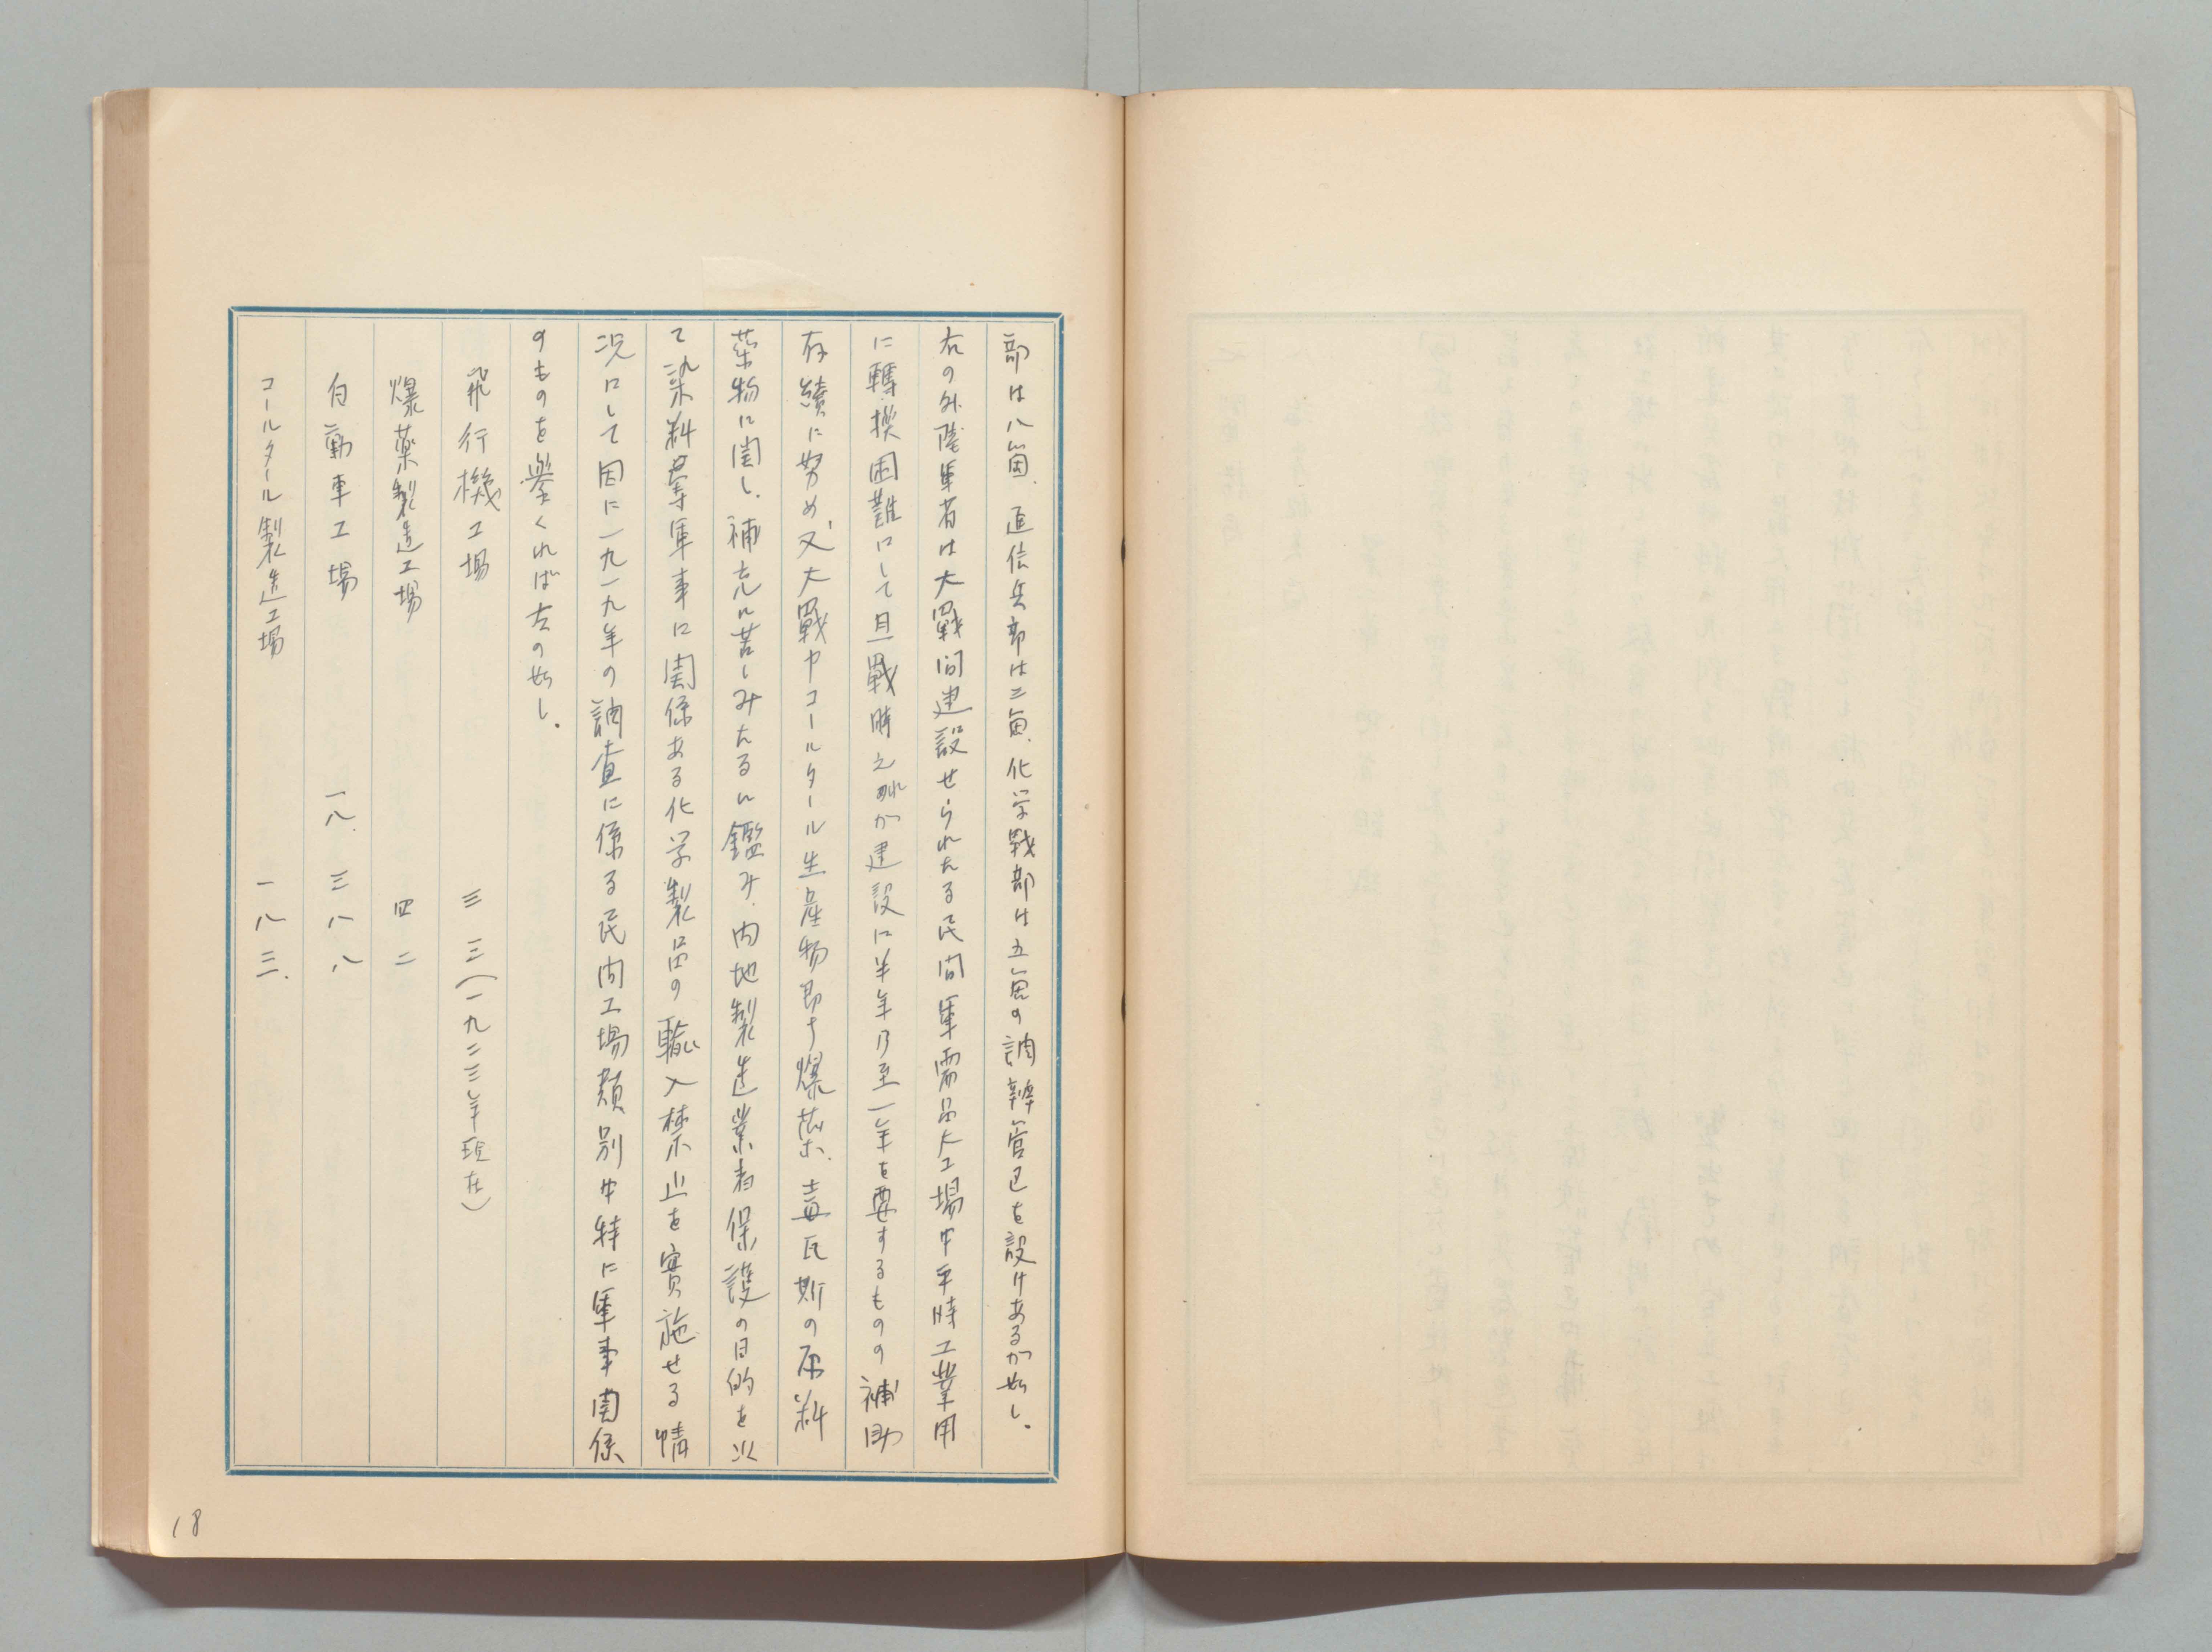 部は八箇、通信兵部は三箇、化学戰部は五箇の調辨管区を設けあるが如し.
右の外陸軍省は大戰間建設せられたる民間軍需品大工場中平時工業用
に轉換困難にして且戰時之が建設に半年乃至一年を要するものの補助
存續に努め、又大戰中コールタール生産物即ち爆薬、毒瓦斯の原料
薬物に関し、補充に苦しみたるに鑑み、内地製造業者保護の目的を以
て染料等軍事に関係ある化学製品の輸入禁止を實施せる情
況にして因に一九一九年の調査に係る民間工場類別中特に軍事関係
のものを挙くれば左の如し.
飛行機工場 三三(一九二三年現在)
爆薬製造工場 四二
自動車工場 一八.三八八
コールタール製造工場 一八三.
18